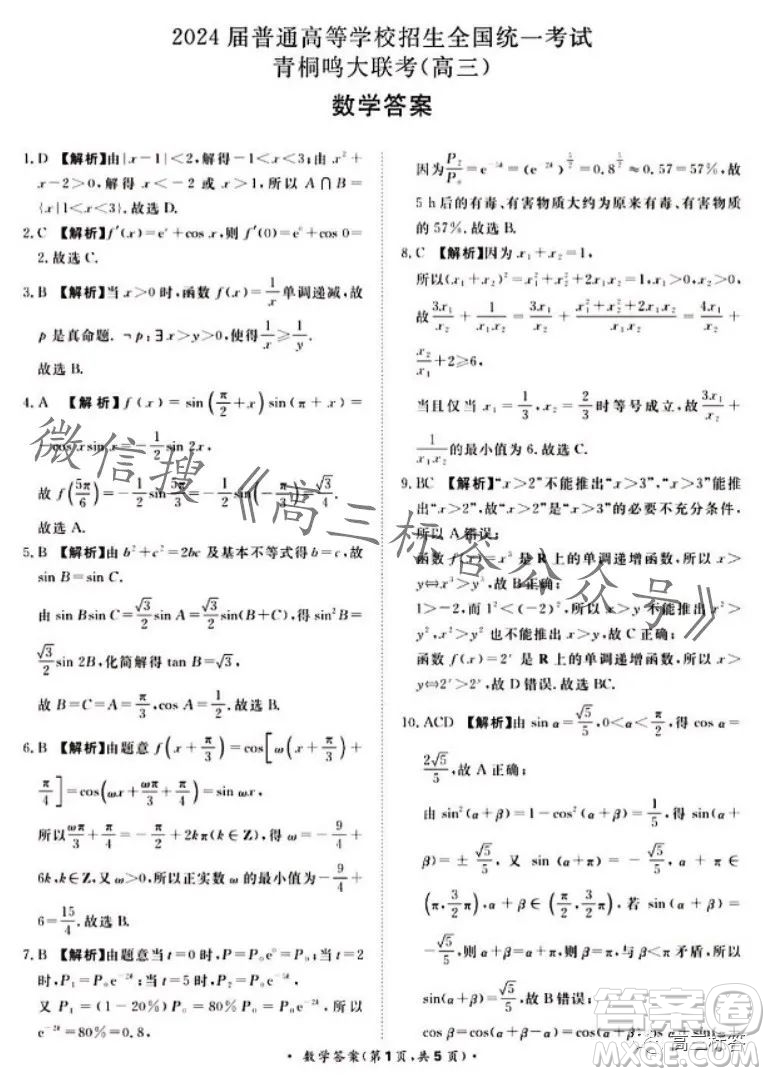 2024届普通高等学校招生全国统一考试
青桐鸣大联考(高三)
数学答案
1. D 【解析】由|x-1|<2,解得-1<x<3,由x²+
x-2>0,解得x<-2或x>1,所以A∩B=
{x|1<x<3}.故选D.
2. C 【解析】f′(x)=eˣ+cos x,则f′(0)=e⁰+cos 0=
2.故选C.
3. B 【解析】当x>0时,函数f(x)=1/x单调递减,故
p是真命题.¬p:∃x>y>0,使得1/x≥1/y.
故选B.
4. A 【解析】f(x)=sin(π/2+x)sin(π+x)=
-cos x sin x=-1/2 sin 2x,
故f(5π/6)=-1/2 sin 5π/3=√3/4.
故选A.
5. B 【解析】由b²+c²=2bc及基本不等式得b=c,故
sin B=sin C.
由sin Bsin C=√3/2 sin A=√3/2 sin(B+C),得sin²B=
√3/2 sin 2B,化简解得tan B=√3,
故B=C=A=π/3,cos A=1/2.故选B.
6. B 【解析】由题意f(x+π/3)=cos[ω(x+π/3)+
π/4]=cos(ωx+ωπ/3+π/4)=sin ωx,
所以ωπ/3+π/4=-π/2+2kπ(k∈Z),得ω=-9/4+
6k,k∈Z,又ω>0,所以正实数ω的最小值为-9/4+
6=15/4.故选B.
7. B 【解析】由题意当t=0时,P=P₀e⁰=P₀;当t=2
时,P₁=P₀e⁻²ᵏ;当t=5时,P₂=P₀e⁻⁵ᵏ.
又P₁=(1-20%)P₀=80%P₀=P₀e⁻²ᵏ,所以
e⁻²ᵏ=80%=0.8,
因为P₂/P₀=e⁻⁵ᵏ=(e⁻²ᵏ)^(5/2)=0.8^(5/2)≈0.57=57%,故
5 h后的有毒、有害物质大约为原来有毒、有害物质
的57%.故选B.
8. C 【解析】因为x₁+x₂=1,
所以(x₁+x₂)²=x₁²+x₂²+2x₁x₂=1,x₁>0,x₂>0,
故3x₁/x₂+1/(x₁x₂)=3x₁/x₂+(x₁²+x₂²+2x₁x₂)/(x₁x₂)=4x₁/x₂+
x₂/x₁+2≥6,
当且仅当x₁=1/3,x₂=2/3时等号成立,故3x₁/x₂+
1/(x₁x₂)的最小值为6.故选C.
9. BC 【解析】“x>2”不能推出“x>3”,“x>3”能推
出“x>2”,故“x>2”是“x>3”的必要不充分条件,
所以A错误;
函数f(x)=x³是R上的单调递增函数,所以x>
y⇔x³>y³,故B正确;
1>-2,而1²<(-2)²,所以x>y不能推出x²>
y²,x²>y²也不能推出x>y,故C正确;
函数f(x)=2ˣ是R上的单调递增函数,所以x>
y⇔2ˣ>2ʸ,故D错误.故选BC.
10. ACD 【解析】由sin α=√5/5,0<α<π/2,得cos α=
2√5/5,故A正确;
由sin²(α+β)=1-cos²(α+β)=1/5,得sin(α+
β)=±√5/5,又sin(α+π)=-√5/5,α+π∈
(π,3/2π),α+β∈(π,3/2π),所以sin(α+β)=
-√5/5,则α+β=α+π,所以β=π,所以
sin(α+β)=-√5/5,故B错误;
·数学答案(第1页,共5页)·
微信搜《高三标答公众号》
答案圈
高三标答